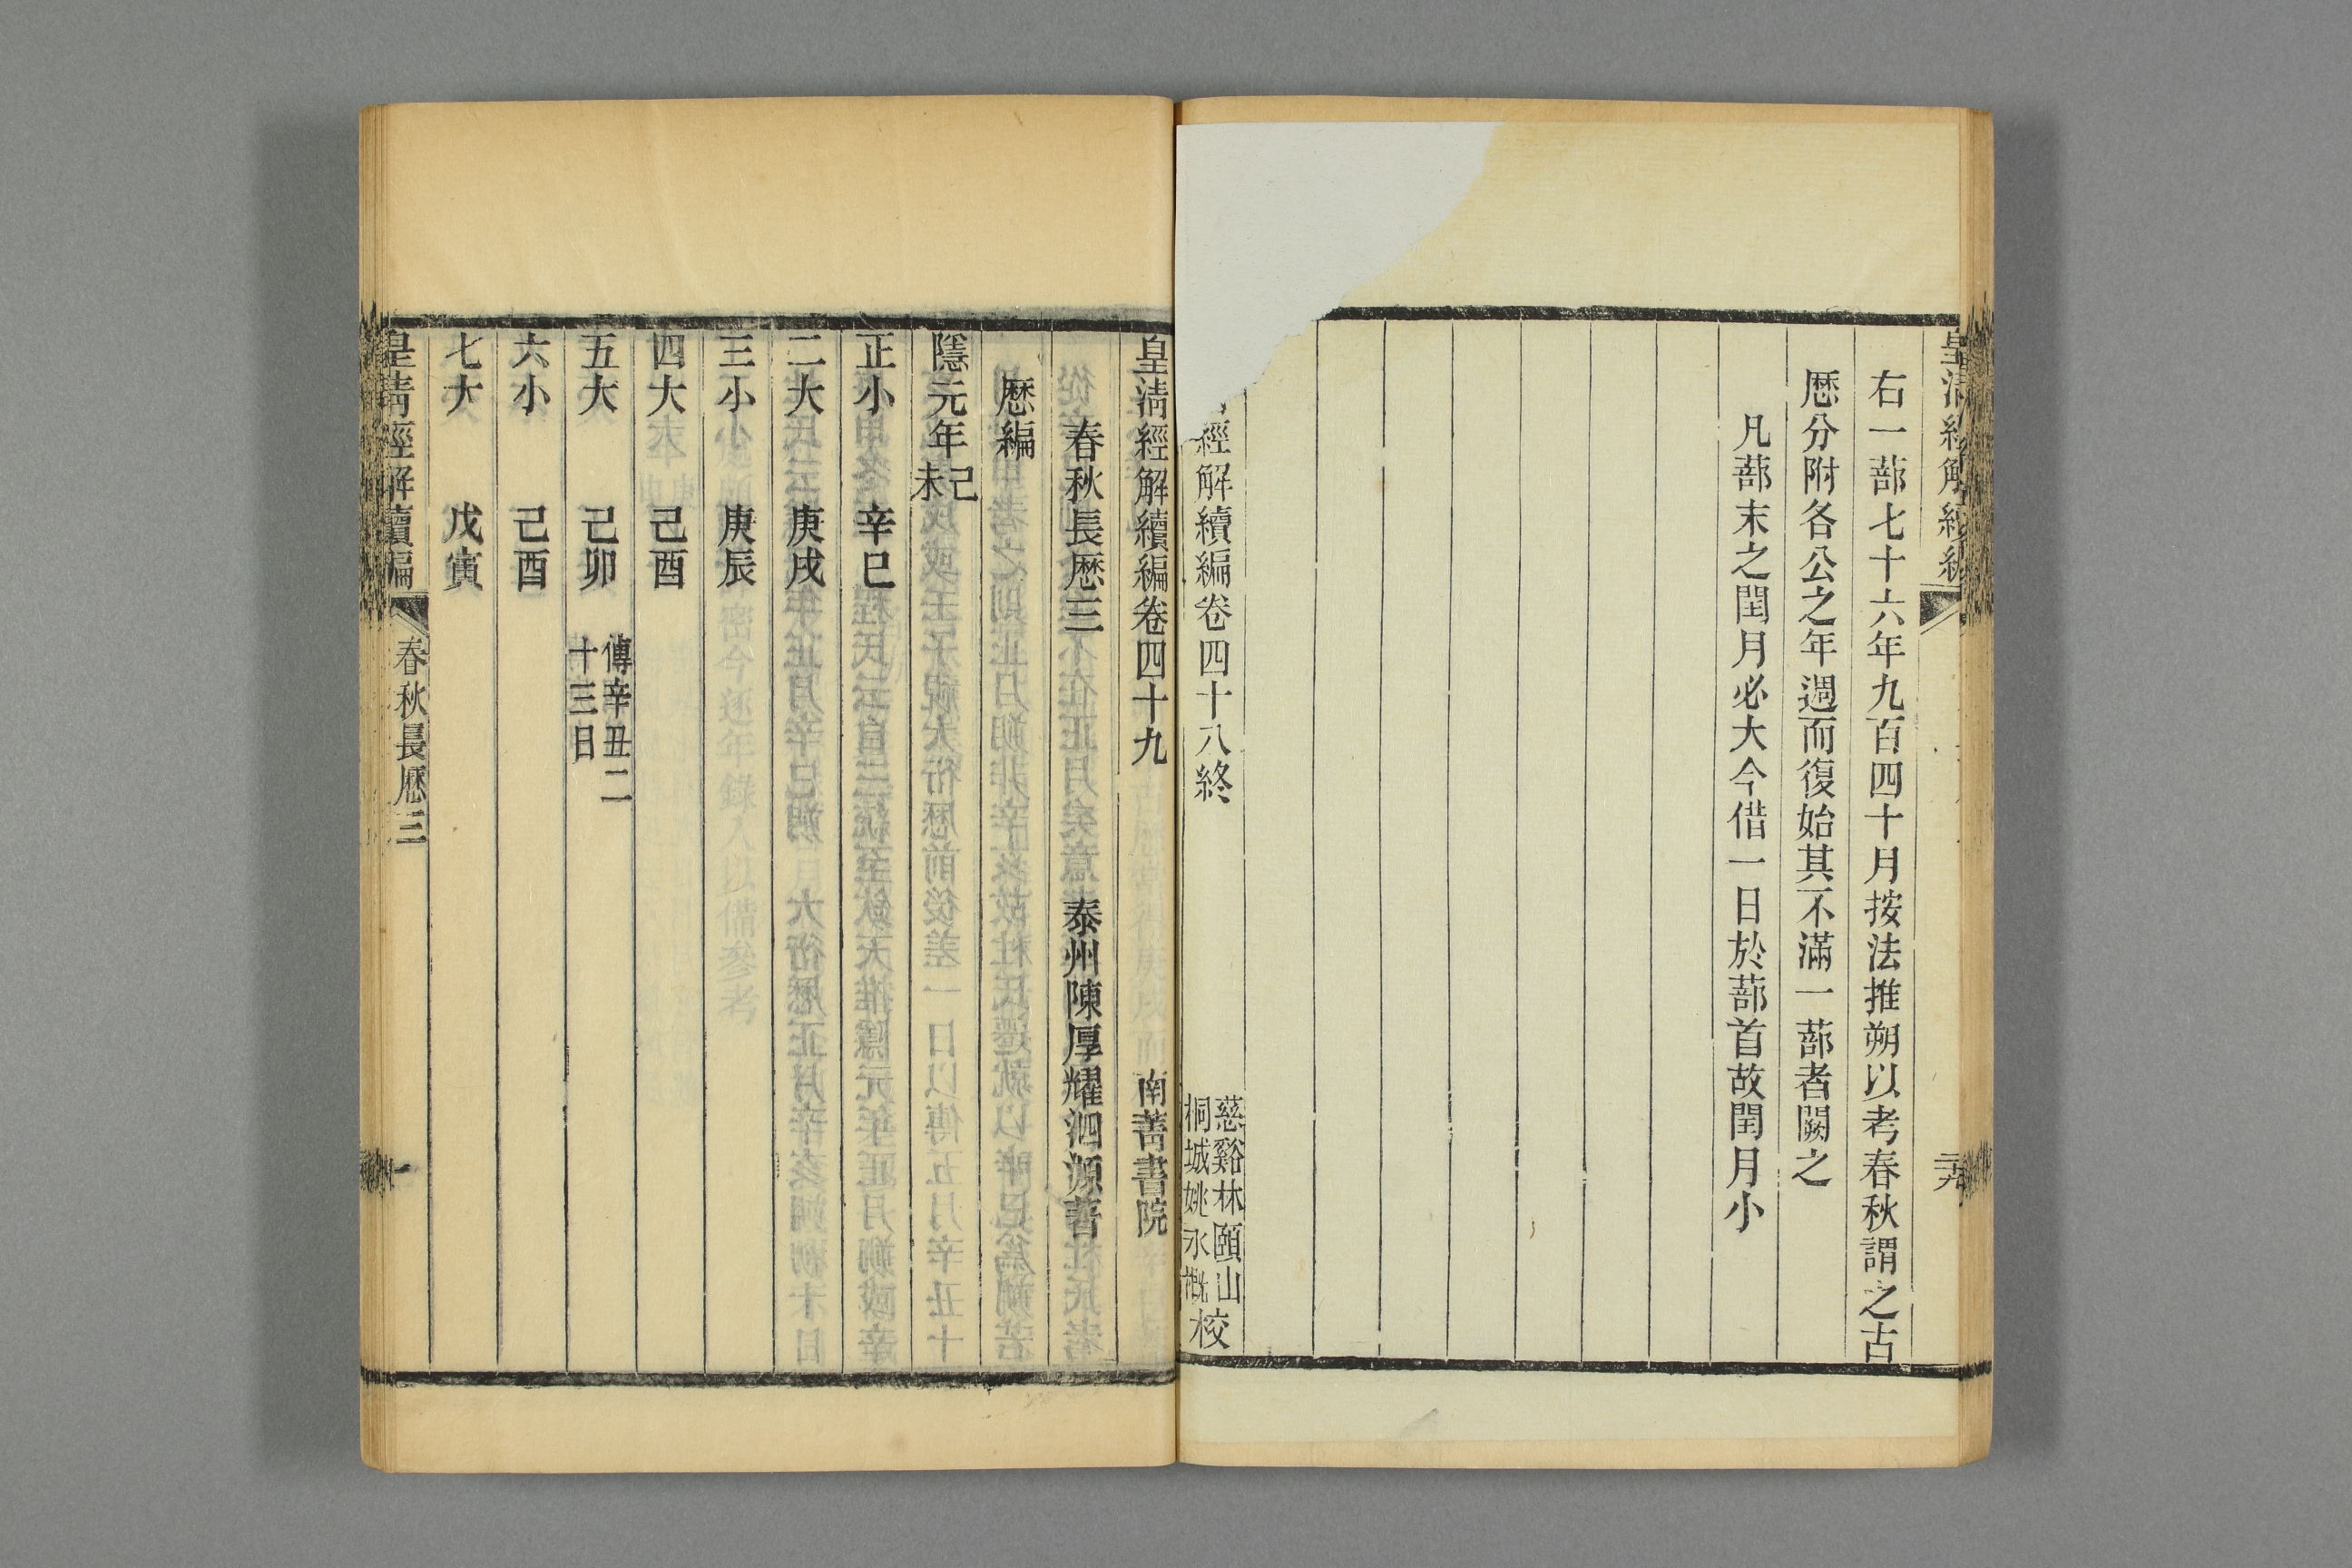 皇清經解續編
二九
右一蔀七十六年九百四十月按法推朔以考春秋謂之古
厯分附各公之年週而復始其不滿一蔀者闕之
凡蔀末之閏月必大今借一日於蔀首故閏月小
經解續編卷四十八終
慈谿林頤山
桐城姚永概
校
皇清經解續編卷四十九
南菁書院
春秋長厯三
泰州陳厚耀泗源著
厯編
隱元年己未
正小 辛巳
二大 庚戌
三小 庚辰
四大 己酉
五大 己卯 傳辛丑二十三日
六小 己酉
七大 戊寅
皇清經解續編 春秋長厯三 一